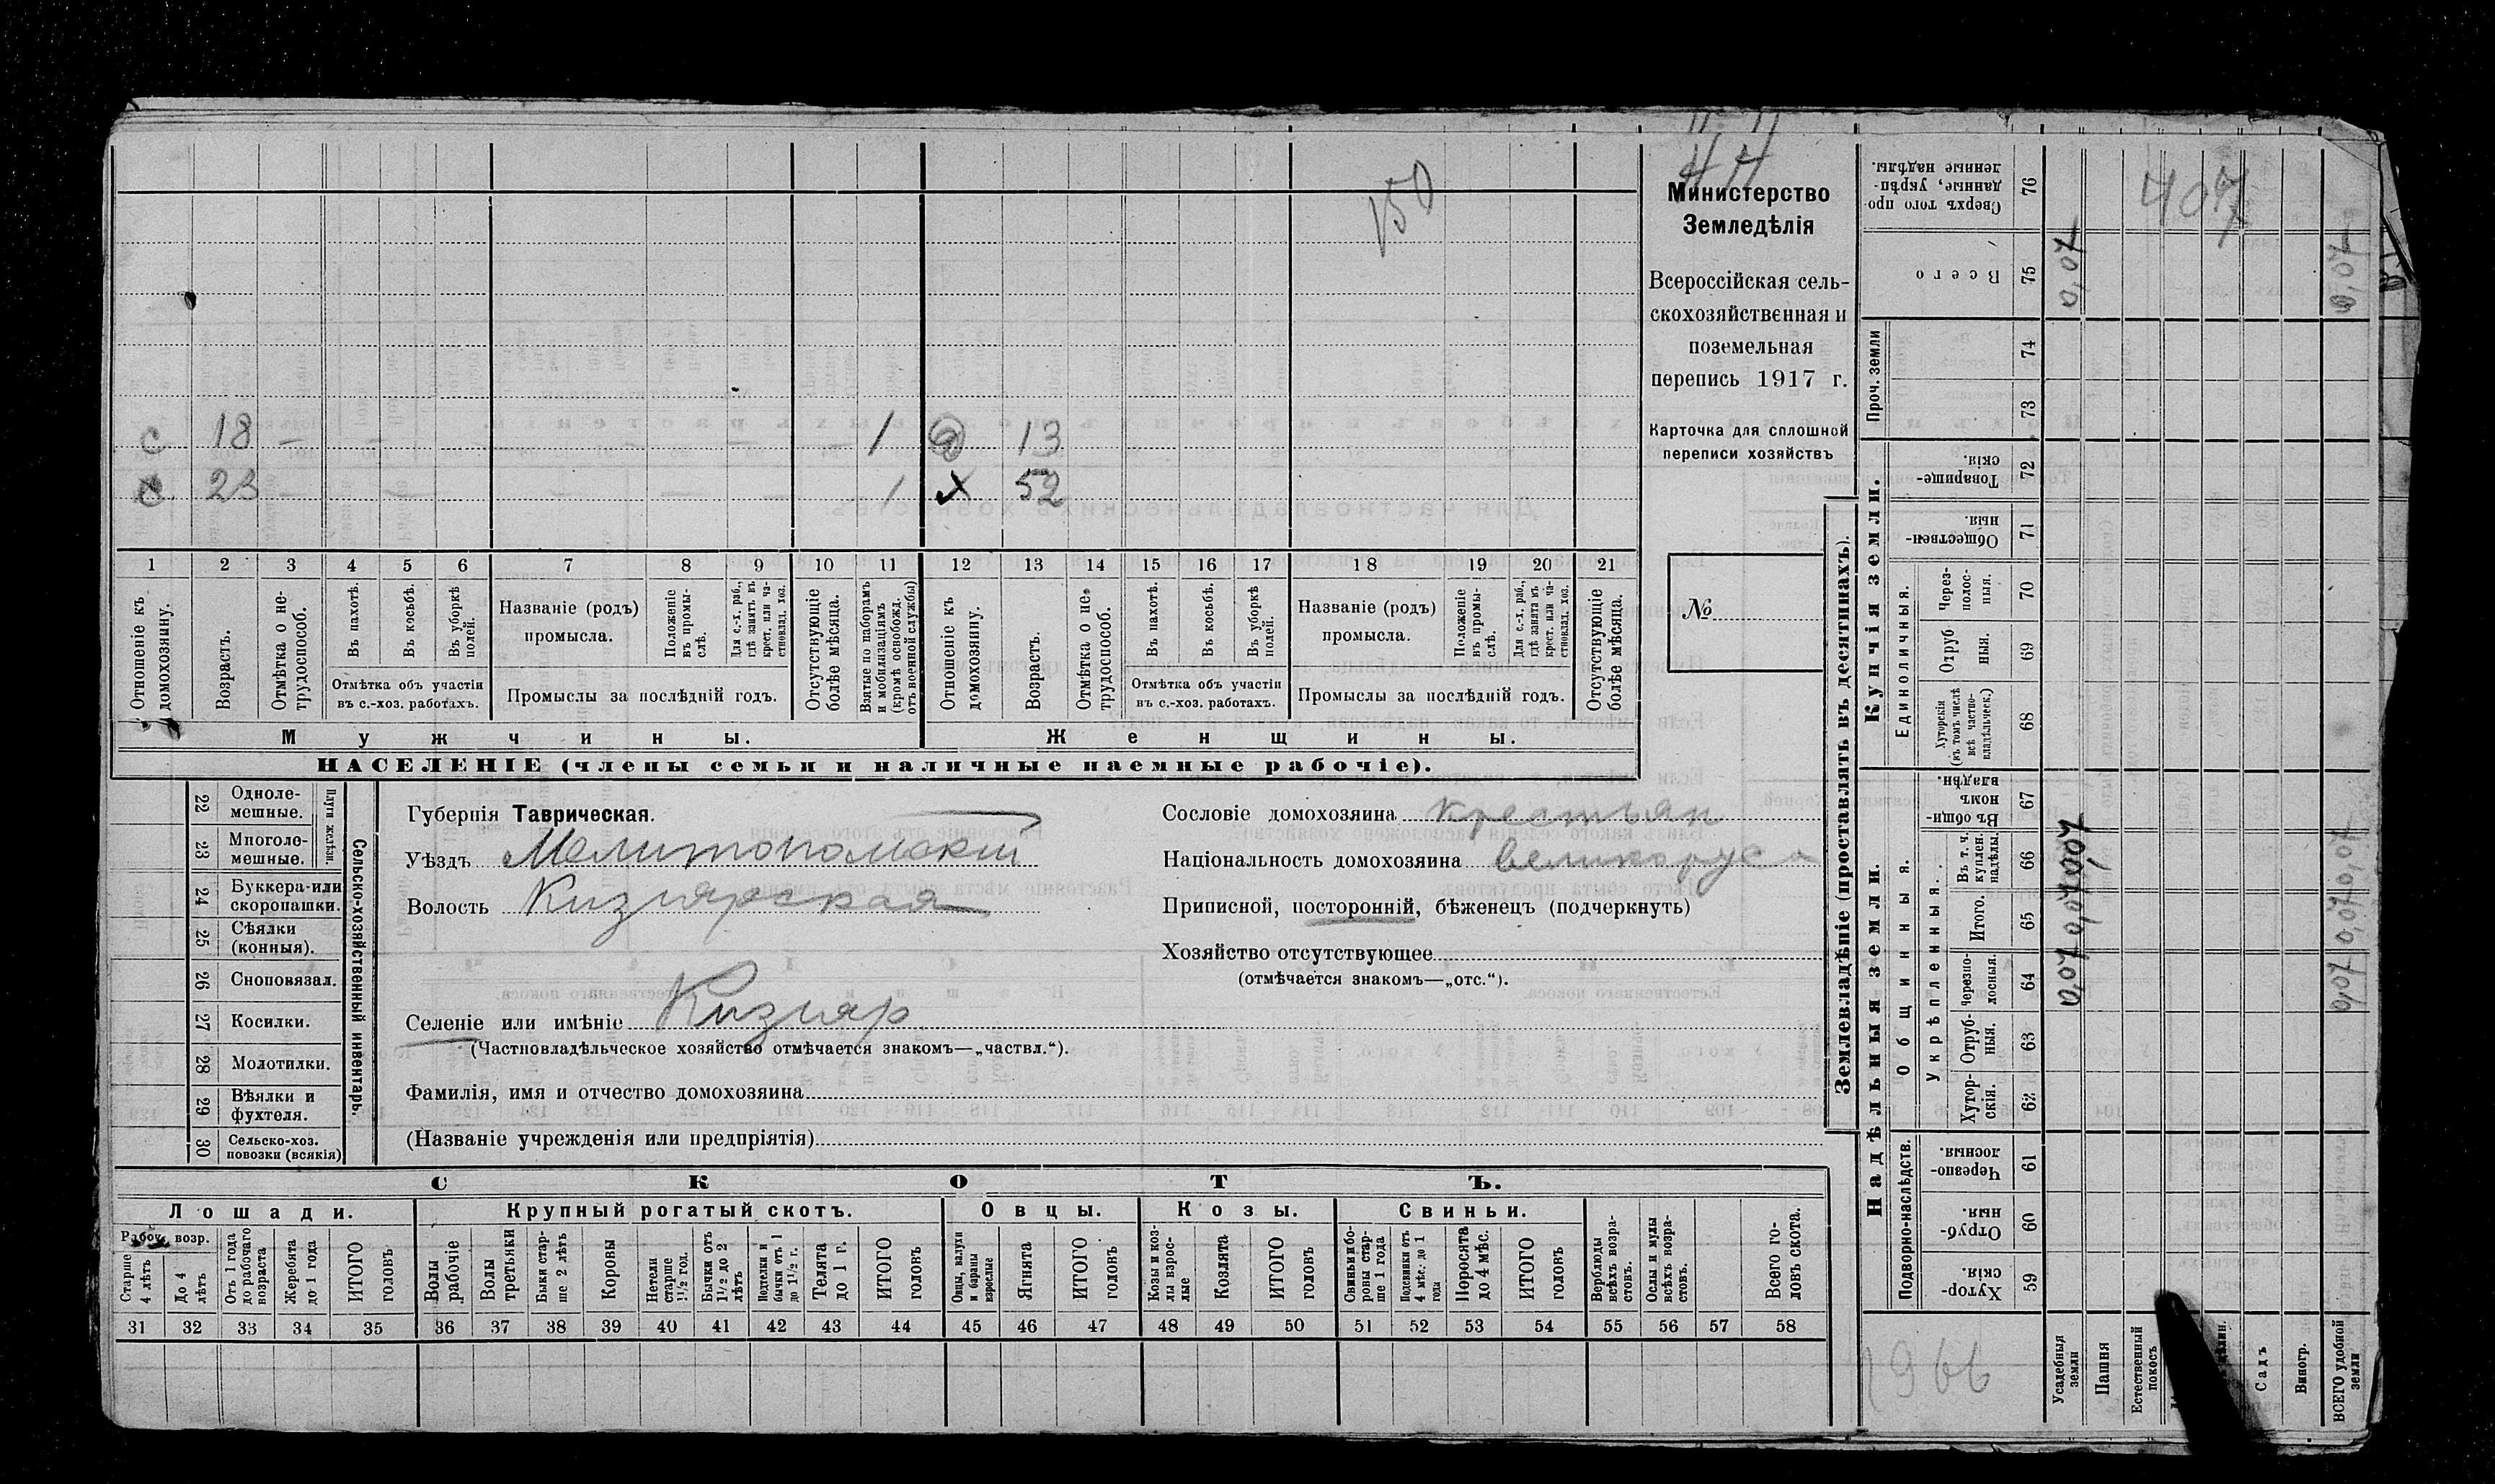 150
44
407
Министерство
Земледѣлія
Всероссійская сель-
скохозяйственная и
поземельная
перепись 1917 г.
Карточка для сплошной
переписи хозяйствъ
№
с 18 — 1 13
с 23 1 х 52
1 2 3 4 5 6 7 8 9 10 11 12 13 14 15 16 17 18 19 20 21
Отношеніе къ домохозяину.
Возрастъ.
Отмѣтка о не-трудоспособ.
Въ пахотѣ.
Въ косьбѣ.
Въ уборкѣ полей.
Отмѣтка объ участіи
въ с.-хоз. работахъ.
Названіе (родъ)
промысла.
Положеніе въ промы-слѣ.
Для с.-х. раб., гдѣ занятъ въ крест. или ча-стновлад. хоз.
Промыслы за послѣдній годъ.
Отсутствующіе болѣе мѣсяца.
Взятые по наборамъ и мобилизаціямъ (кромѣ освобожд. отъ военной службы)
Отношеніе къ домохозяину.
Возрастъ.
Отмѣтка о не-трудоспособ.
Въ пахотѣ.
Въ косьбѣ.
Въ уборкѣ полей.
Отмѣтка объ участіи
въ с.-хоз. работахъ.
Названіе (родъ)
промысла.
Положеніе въ промы-слѣ.
Для с.-х. раб., гдѣ занята въ крест. или ча-стновлад. хоз.
Промыслы за послѣдній годъ.
Отсутствующіе болѣе мѣсяца.
Мужчины. Женщины.
НАСЕЛЕНІЕ (члены семьи и наличные наемные рабочіе).
Сельско-хозяйственный инвентарь.
Плуги желѣзн.
22 Одноле-мешные.
23 Многоле-мешные.
24 Буккера или скоропашки.
25 Сѣялки (конныя).
26 Сноповязал.
27 Косилки.
28 Молотилки.
29 Вѣялки и фухтеля.
30 Сельско-хоз. повозки (всякія)
Губернія Таврическая.
Уѣздъ Мелитопольскій
Волость Кизиярская
Селеніе или имѣніе Кизияр
(Частновладѣльческое хозяйство отмѣчается знакомъ—„частвл.“).
Фамилія, имя и отчество домохозяина
(Названіе учрежденія или предпріятія)
Сословіе домохозяина крестьян
Національность домохозяина великорус
Приписной, посторонній, бѣженецъ (подчеркнуть)
Хозяйство отсутствующее
(отмѣчается знакомъ—„отс.“).
СКОТЪ.
Лошади. Крупный рогатый скотъ. Овцы. Козы. Свиньи.
Рабоч. возр.
Старше 4 лѣтъ
До 4 лѣтъ
Отъ 1 года до рабочаго возраста
Жеребята до 1 года
ИТОГО головъ
Волы рабочіе
Волы третьяки
Быки стар-ше 2 лѣтъ
Коровы
Нетели старше 1½ год.
Бычки отъ 1½ до 2 лѣтъ
Подтелки и бычки отъ 1 до 1½ г.
Телята до 1 г.
ИТОГО головъ
Овцы, валухи и бараны взрослые
Ягнята
ИТОГО головъ
Козы и коз-лы взрос-лые
Козлята
ИТОГО головъ
Свиньи бо-ровы стар-ше 1 года
Подсвинки отъ 4 мѣс. до 1 года
Поросята до 4 мѣс.
ИТОГО головъ
Верблюды всѣхъ возра-стовъ.
Ослы и мулы всѣхъ возра-стовъ.
Всего го-ловъ скота.
31 32 33 34 35 36 37 38 39 40 41 42 43 44 45 46 47 48 49 50 51 52 53 54 55 56 57 58
Землевладѣніе (проставлять въ десятинахъ).
Надѣльныя земли.
Купчія земли.
Проч. земли
Подворно-наслѣдств.
Общинныя.
Укрѣпленныя.
Единоличныя.
Сверхъ того про-данные, укрѣп-ленные надѣлы. 76
Всего 75 0,07 0,07
74
73
Товарище-скія. 72
Обществен-ныя. 71
Через-полос-ныя. 70
Отруб-ныя. 69
Хуторскія (въ томъ числѣ всѣ частно-владѣльческ.) 68
Въ общин-номъ владѣн. 67
Въ т. ч. куплен. надѣлы. 66 0,07 0,07
Итого. 65 0,07 0,07
Черезпо-лосныя. 64 0,07 0,07
Отруб-ныя. 63
Хутор-скія. 62
Черезпо-лосныя. 61
Отруб-ныя. 60
Хутор-скія. 59
Усадебныя земли
Пашня
Естественный покосъ
Садъ
Виногр.
ВСЕГО удобной земли
1966